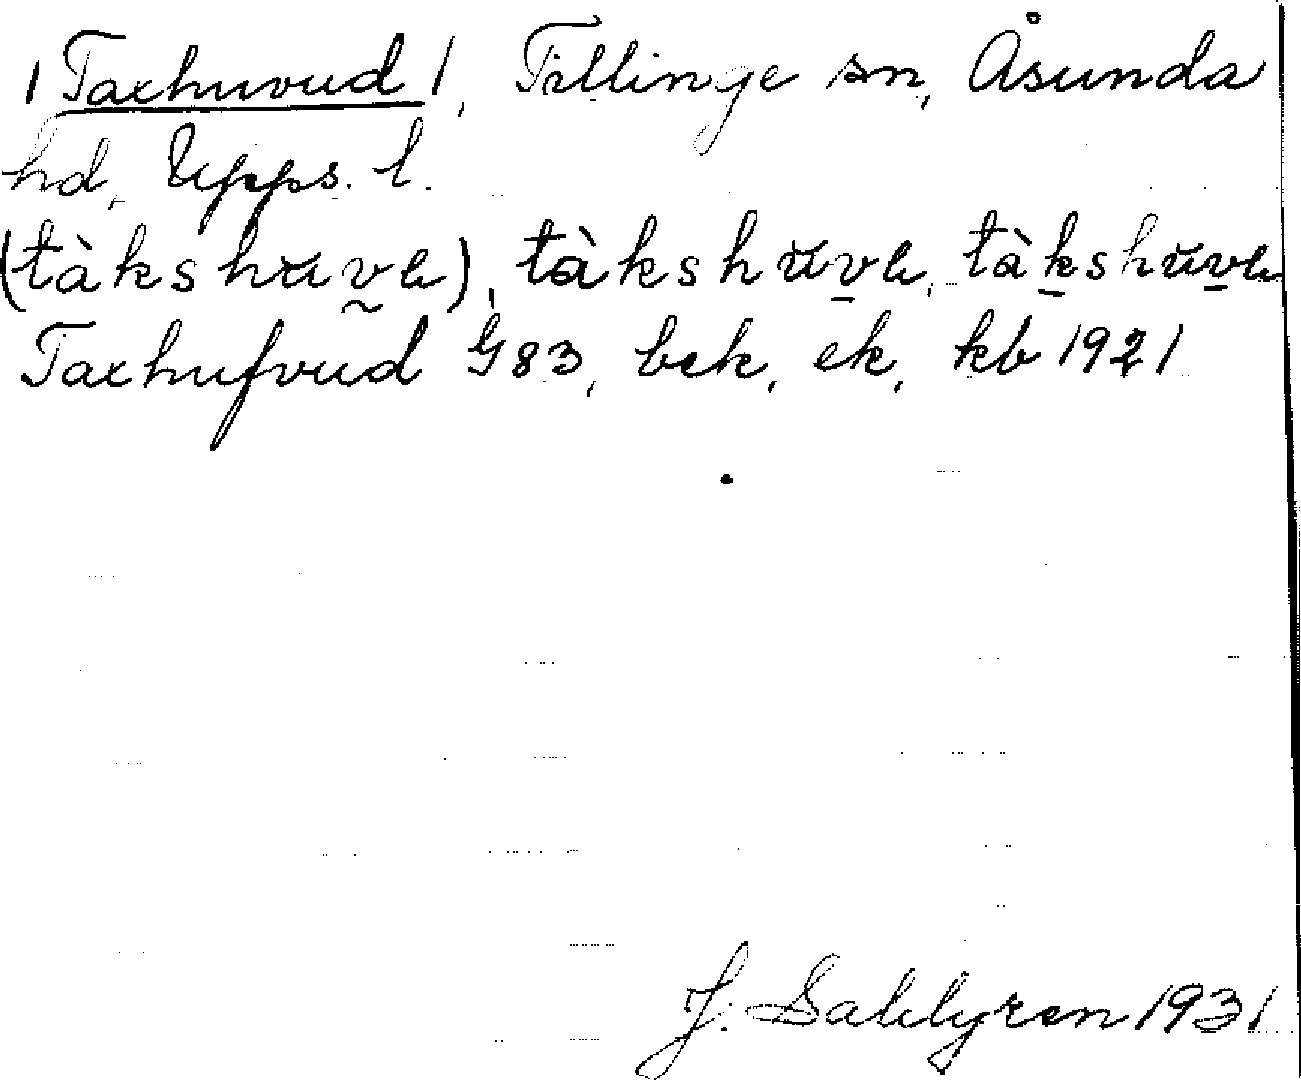 /Taxhuvud/, Tillinge sn, Åsunda
hd, Upps. l.
(tàkshuvɐ), tàkshŭvɐ, tàkshŭvɐ
Taxhufvud G83, bek, ek, kb 1921
J. Sahlgren 1931